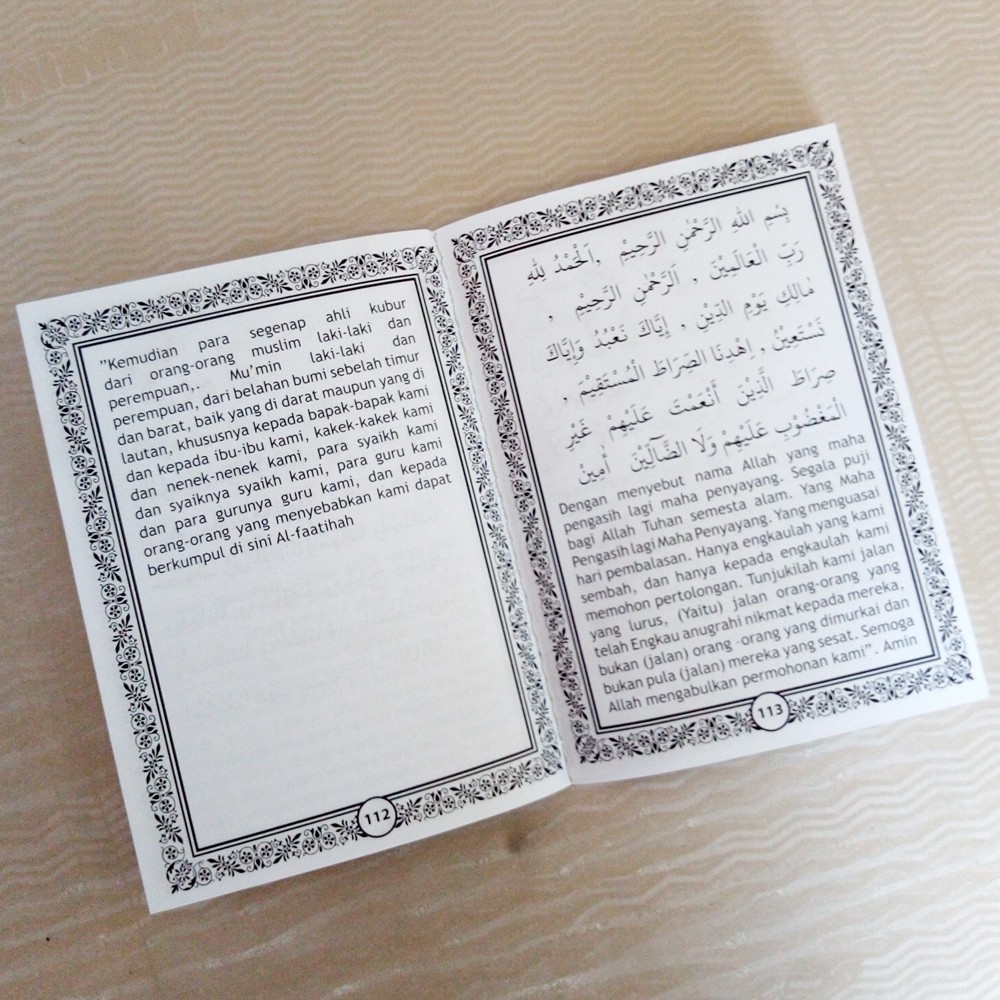 "Kemudian para segenap ahli kubur
dari orang-orang muslim laki-laki dan
perempuan,. Mu'min laki-laki dan
perempuan, dari belahan bumi sebelah timur
dan barat, baik yang di darat maupun yang di
lautan, khususnya kepada bapak-bapak kami
dan kepada ibu-ibu kami, kakek-kakek kami
dan nenek-nenek kami, para syaikh kami
dan syaiknya syaikh kami, para guru kami
dan para gurunya guru kami, dan kepada
orang-orang yang menyebabkan kami dapat
berkumpul di sini Al-faatihah
112
بِسْمِ اللهِ الرَّحْمٰنِ الرَّحِيْمِ ,اَلْحَمْدُ لِلهِ
رَبِّ الْعَالَمِيْنَ , اَلرَّحْمٰنِ الرَّحِيْمِ ,
مٰالِكِ يَوْمِ الدِّيْنِ , إِيَّاكَ نَعْبُدُ وَإِيَّاكَ
نَسْتَعِيْنُ , اِهْدِنَا الصِّرَاطَ الْمُسْتَقِيْمَ ,
صِرَاطَ الَّذِيْنَ أَنْعَمْتَ عَلَيْهِمْ غَيْرِ
الْمَغْضُوْبِ عَلَيْهِمْ وَلَا الضَّآلِّيْنَ أٰمِيْنْ
Dengan menyebut nama Allah yang maha
pengasih lagi maha penyayang. Segala puji
bagi Allah Tuhan semesta alam. Yang Maha
Pengasih lagi Maha Penyayang. Yang menguasai
hari pembalasan. Hanya engkaulah yang kami
sembah, dan hanya kepada engkaulah kami
memohon pertolongan. Tunjukilah kami jalan
yang lurus, (Yaitu) jalan orang-orang yang
telah Engkau anugrahi nikmat kepada mereka,
bukan (jalan) orang -orang yang dimurkai dan
bukan pula (jalan) mereka yang sesat. Semoga
Allah mengabulkan permohonan kami" . Amin
113